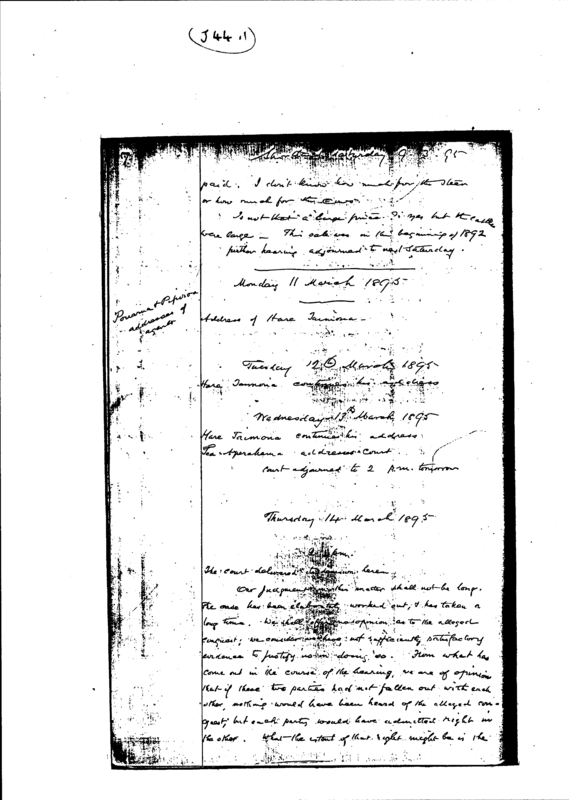 J 44.1
7
Saturday 9 3 95
paid. I don't know how much for the steer
or how much for the cows.
Is not that a large price? yes but the cattle
were large — This sale was in the beginning of 1892
further hearing adjourned to next Saturday.
Monday 11 March 1895
addresses of
agents
Address of Hare Teimona —
Tuesday 12th March 1895
Hare Teimona continues his address
Wednesday 13th March 1895
Hare Teimona continues his address
Aperahama addresses Court
Court adjourned to 2 p.m. tomorrow
Thursday 14 March 1895
The Court delivered decision herein
Our Judgment in this matter shall not be long.
The case has been elaborately worked out, & has taken a
long time. We shall opinion as to the alleged
conquest; we consider not sufficiently satisfactory
evidence to justify us in doing so. From what has
come out in the course of the hearing, we are of opinion
that if these two parties had not fallen out with each
other, nothing would have been heard of the alleged con-
quest, but each party would have admitted right in
the other. What the extent of that right might be is the